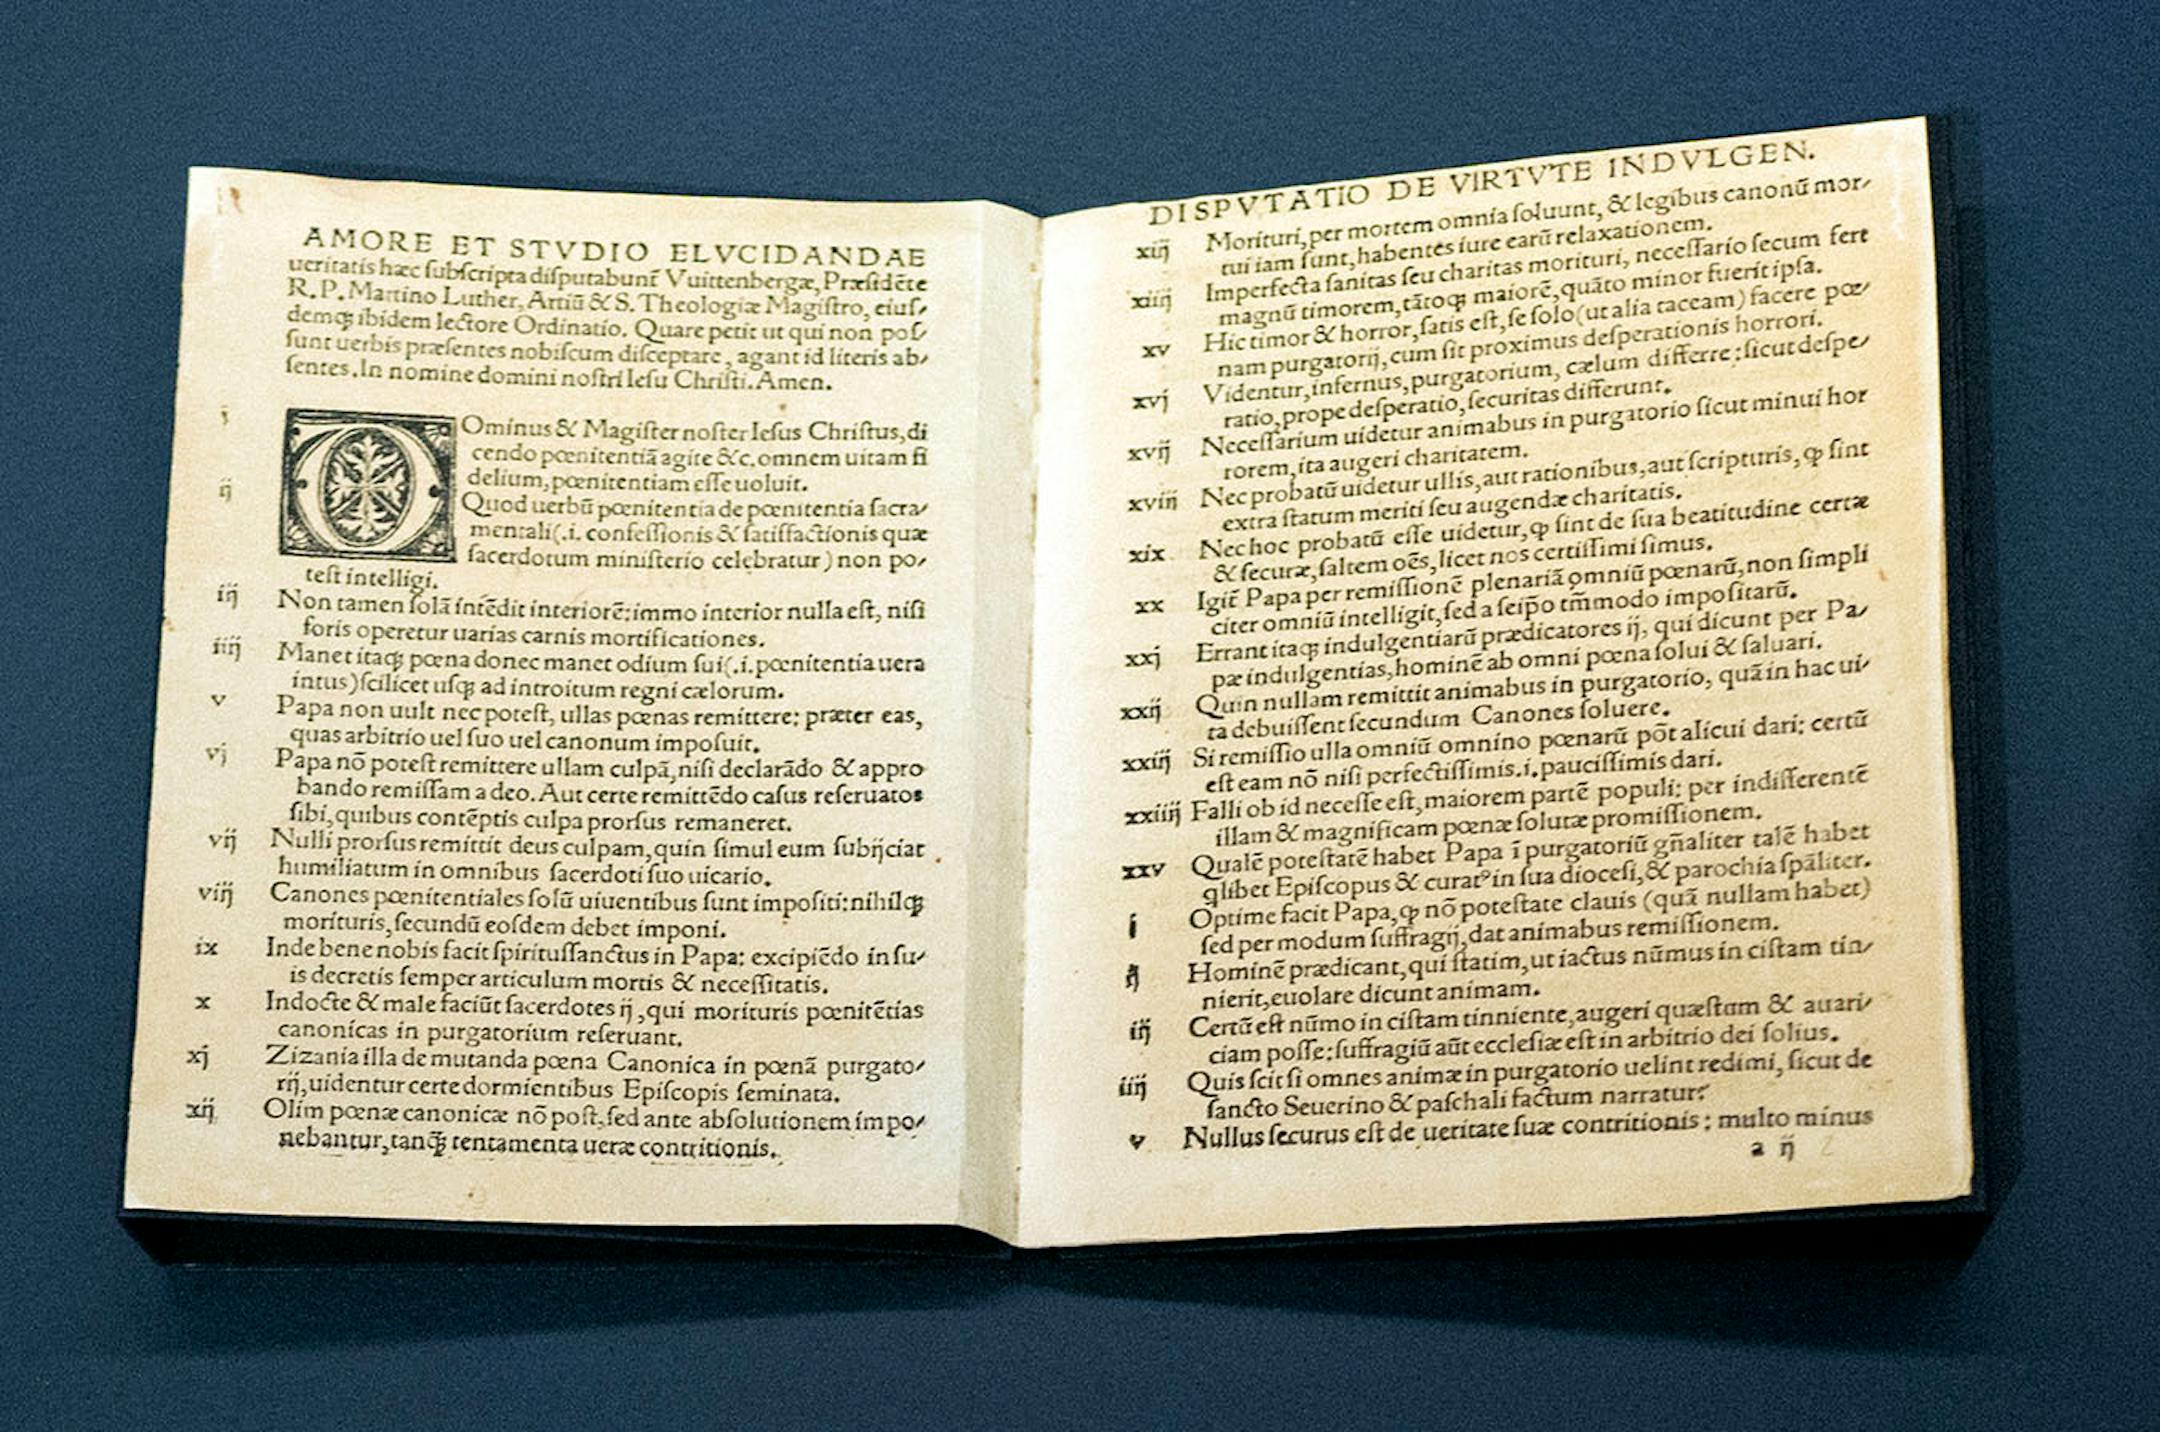 AMORE ET STVDIO ELVCIDANDAE
ueritatis hæc subscripta disputabunt̃ Vuittenbergæ, Præsidẽte
R. P. Martino Luther, Artiũ & S. Theologiæ Magistro, eius/
demq; ibidem lectore Ordinatio. Quare petit ut qui non pos/
sunt uerbis præsentes nobiscum disceptare, agant id literis ab/
sentes. In nomine domini nostri Iesu Christi. Amen.
i Ominus & Magister noster Iesus Christus, di
cendo pœnitentiã agite &c. omnem uitam fi
delium, pœnitentiam esse uoluit.
ij Quod uerbũ pœnitentia de pœnitentia sacra/
mentali (.i. confessionis & satisfactionis quæ
sacerdotum ministerio celebratur) non po/
test intelligi.
iij Non tamen solã intẽdit interiorẽ: immo interior nulla est, nisi
foris operetur uarias carnis mortificationes.
iiij Manet itaq; pœna donec manet odium sui (.i. pœnitentia uera
intus) scilicet usq; ad introitum regni cælorum.
v Papa non uult nec potest, ullas pœnas remittere: præter eas,
quas arbitrio uel suo uel canonum imposuit.
vj Papa nõ potest remittere ullam culpã, nisi declarãdo & appro
bando remissam a deo. Aut certe remittẽdo casus reseruatos
sibi, quibus contẽptis culpa prorsus remaneret.
vij Nulli prorsus remittit deus culpam, quin simul eum subijciat
humiliatum in omnibus sacerdoti suo uicario.
viij Canones pœnitentiales solũ uiuentibus sunt impositi: nihilq;
morituris, secundũ eosdem debet imponi.
ix Inde bene nobis facit spiritussanctus in Papa: excipiẽdo in su/
is decretis semper articulum mortis & necessitatis.
x Indocte & male faciũt sacerdotes ij, qui morituris pœnitẽtias
canonicas in purgatorium reseruant.
xj Zizania illa de mutanda pœna Canonica in pœnã purgato/
rij, uidentur certe dormientibus Episcopis seminata.
xij Olim pœnæ canonicæ nõ post, sed ante absolutionem impo/
nebantur, tanq̃; tentamenta ueræ contritionis.
DISPVTATIO DE VIRTVTE INDVLGEN.
xiij Morituri, per mortem omnia soluunt, & legibus canonũ mor/
tui iam sunt, habentes iure earũ relaxationem.
xiiij Imperfecta sanitas seu charitas morituri, necessario secum fert
magnũ timorem, tãtoq; maiorẽ, quãto minor fuerit ipsa.
xv Hic timor & horror, satis est, se solo (ut alia taceam) facere pœ/
nam purgatorij, cum sit proximus desperationis horrori.
xvj Videntur, infernus, purgatorium, cælum differre: sicut despe/
ratio, prope desperatio, securitas differunt.
xvij Necessarium uidetur animabus in purgatorio sicut minui hor
rorem, ita augeri charitatem.
xviij Nec probatũ uidetur ullis, aut rationibus, aut scripturis, ꝙ sint
extra statum meriti seu augendæ charitatis.
xix Nec hoc probatũ esse uidetur, ꝙ sint de sua beatitudine certæ
& securæ, saltem oẽs, licet nos certissimi simus.
xx Igit̃ Papa per remissionẽ plenariã omniũ pœnarũ, non simpli
citer omniũ intelligit, sed a seip̃o tm̃modo impositarũ.
xxj Errant itaq; indulgentiarũ prædicatores ij, qui dicunt per Pa/
pæ indulgentias, hominẽ ab omni pœna solui & saluari.
xxij Quin nullam remittit animabus in purgatorio, quã in hac ui/
ta debuissent secundum Canones soluere.
xxiij Si remissio ulla omniũ omnino pœnarũ põt alicui dari: certũ
est eam nõ nisi perfectissimis .i. paucissimis dari.
xxiiij Falli ob id necesse est, maiorem partẽ populi: per indifferentẽ
illam & magnificam pœnæ solutæ promissionem.
xxv Qualẽ potestatẽ habet Papa ĩ purgatoriũ gñaliter talẽ habet
q̃libet Episcopus & curat⁹ in sua diocesi, & parochia sp̃aliter.
i Optime facit Papa, ꝙ nõ potestate clauis (quã nullam habet)
sed per modum suffragij, dat animabus remissionem.
ij Hominẽ prædicant, qui statim, ut iactus nũmus in cistam tin/
nierit, euolare dicunt animam.
iij Certũ est nũmo in cistam tinniente, augeri quæstum & auari/
ciam posse: suffragiũ aũt ecclesiæ est in arbitrio dei solius.
iiij Quis scit si omnes animæ in purgatorio uelint redimi, sicut de
sancto Seuerino & paschali factum narratur?
v Nullus securus est de ueritate suæ contritionis: multo minus
a ij 2